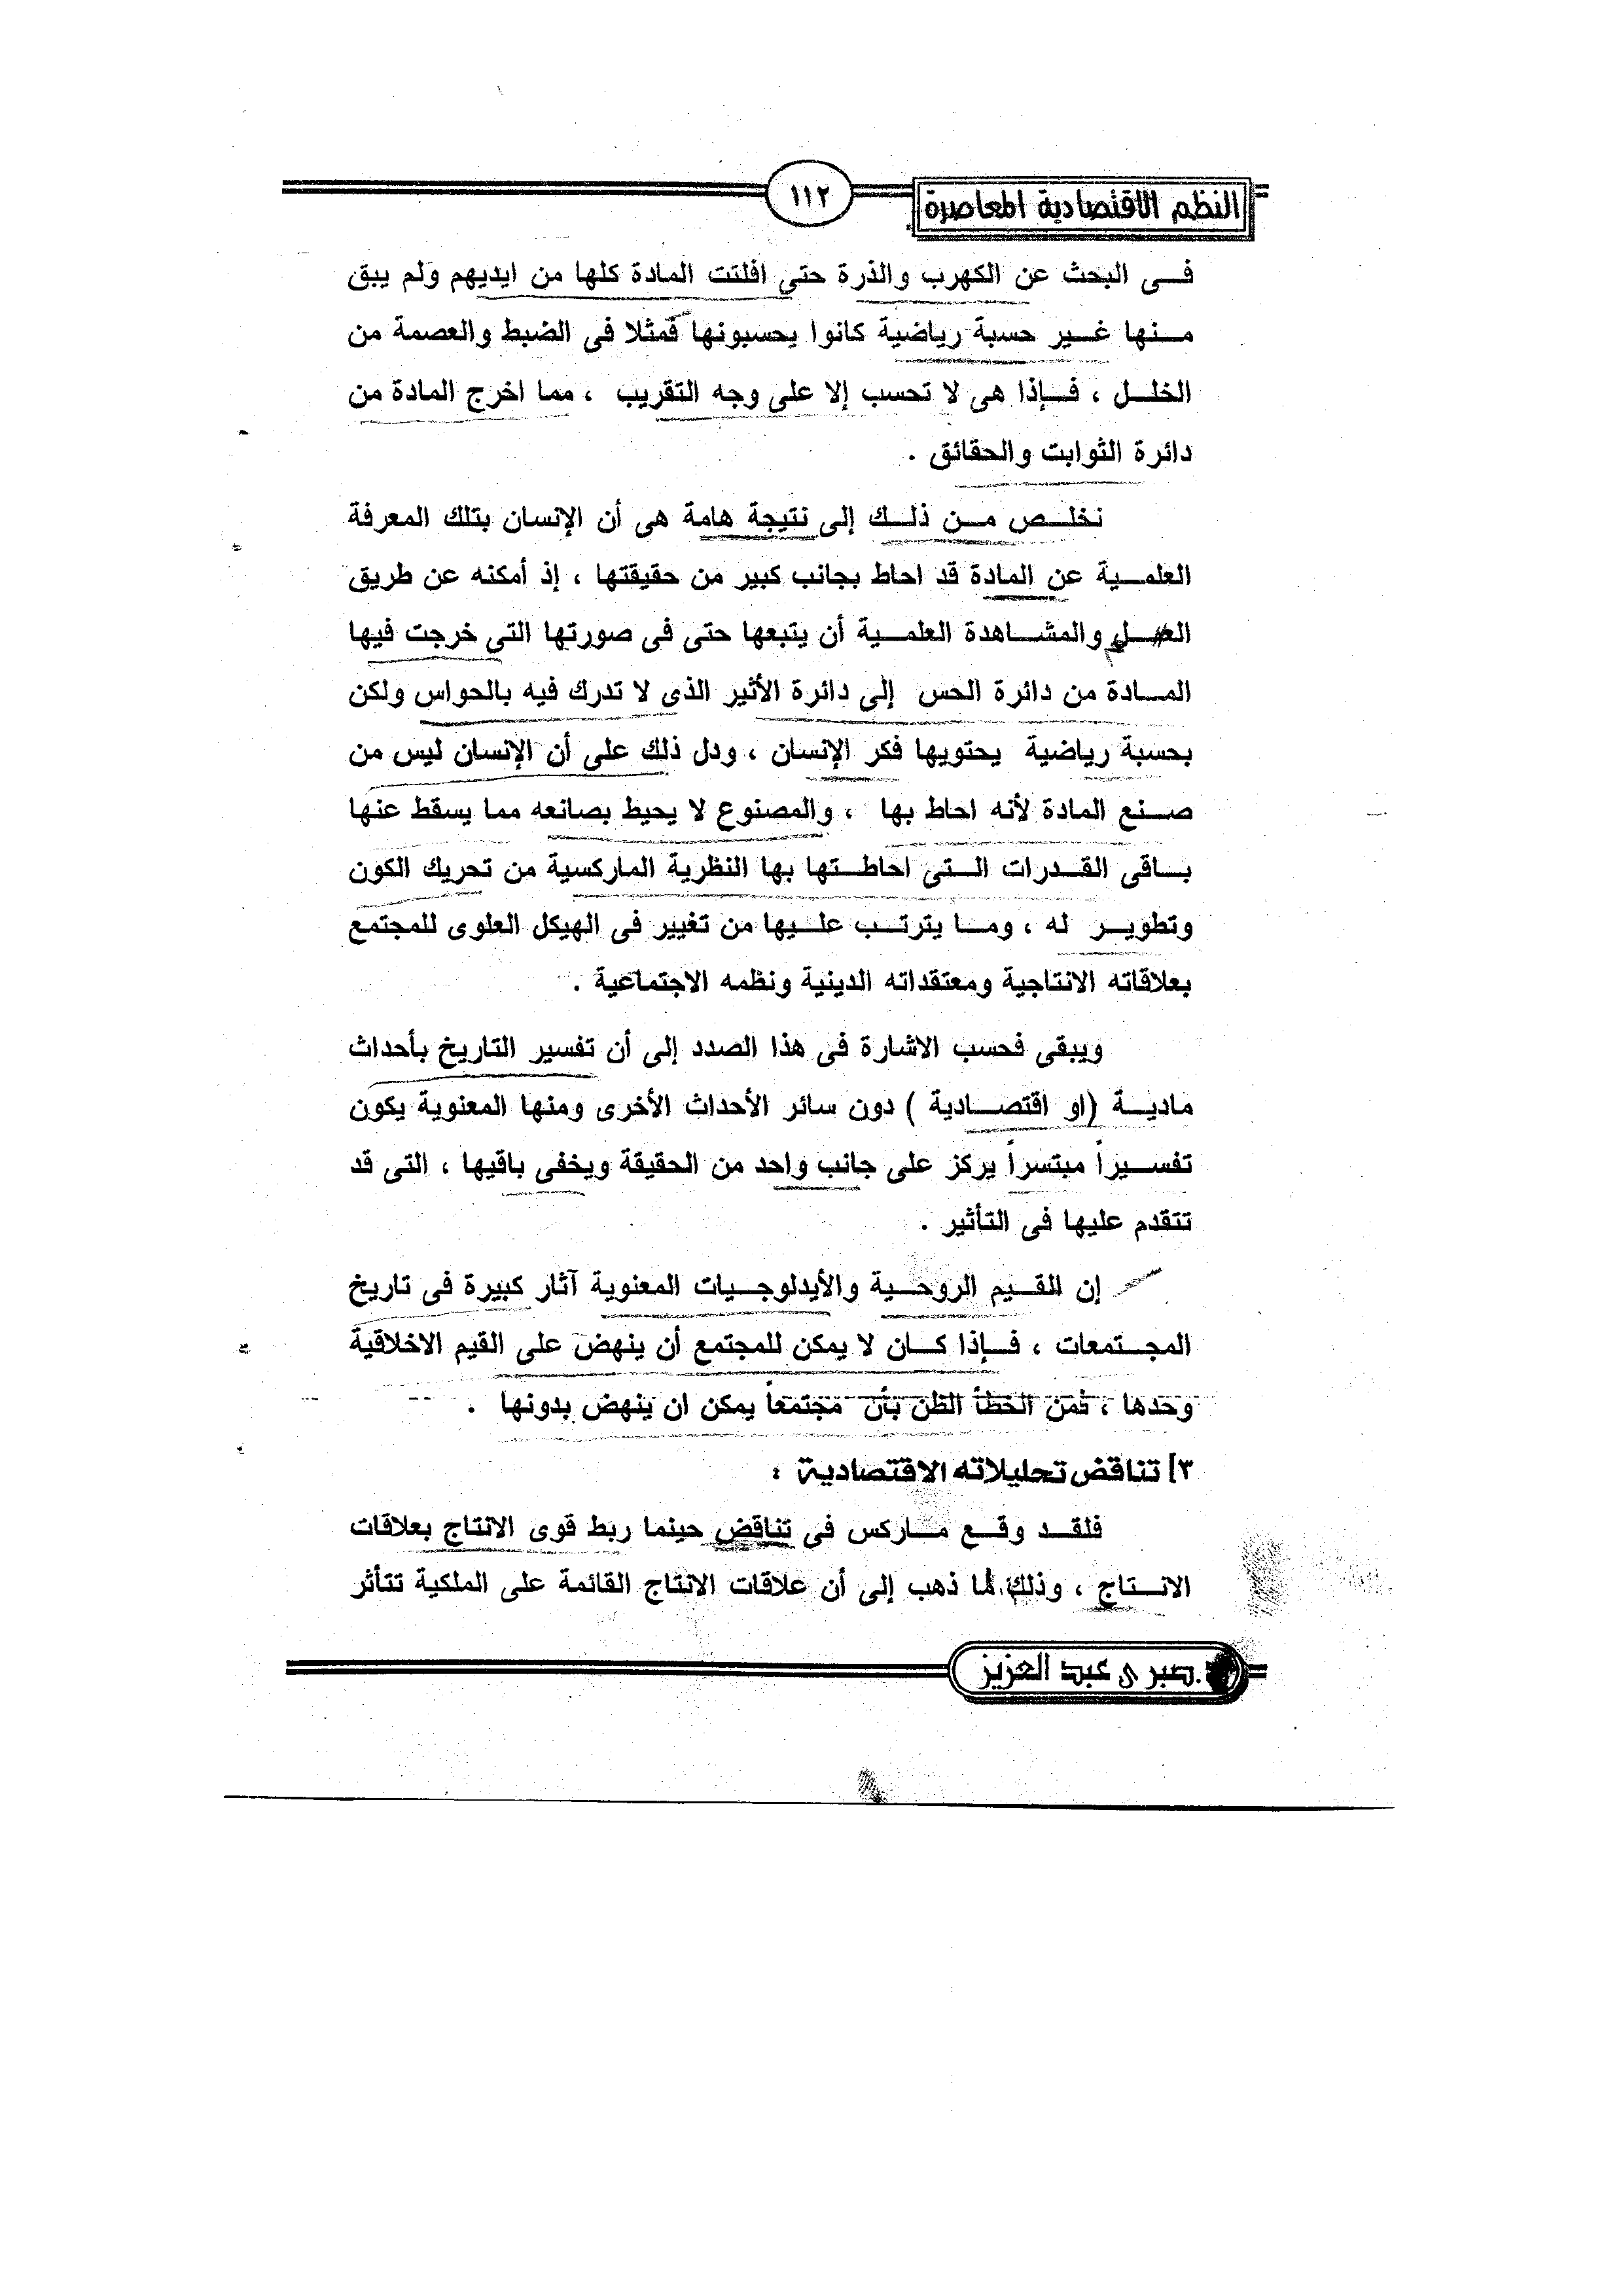 النظم الاقتصادية المعاصرة
١١٢
فى البحث عن الكهرب والذرة حتى افلتت المادة كلها من ايديهم ولم يبق
منها غير حسبة رياضية كانوا يحسبونها قمثلا فى الضبط والعصمة من
الخلل ، فإذا هى لا تحسب إلا على وجه التقريب ، مما اخرج المادة من
دائرة الثوابت والحقائق .
نخلص من ذلك إلى نتيجة هامة هى أن الإنسان بتلك المعرفة
العلمية عن المادة قد احاط بجانب كبير من حقيقتها ، إذ أمكنه عن طريق
والمشاهدة العلمية أن يتبعها حتى فى صورتها التى خرجت فيها
المادة من دائرة الحس إلى دائرة الأثير الذى لا تدرك فيه بالحواس ولكن
بحسبة رياضية يحتويها فكر الإنسان ، ودل ذلك على أن الإنسان ليس من
صنع المادة لأنه احاط بها ، والمصنوع لا يحيط بصانعه مما يسقط عنها
باقى القدرات التى احاطتها بها النظرية الماركسية من تحريك الكون
وتطوير له ، وما يترتب عليها من تغيير فى الهيكل العلوى للمجتمع
بعلاقاته الانتاجية ومعتقداته الدينية ونظمه الاجتماعية .
ويبقى فحسب الاشارة فى هذا الصدد إلى أن تفسير التاريخ بأحداث
مادية (او اقتصادية ) دون سائر الأحداث الأخرى ومنها المعنوية يكون
تفسيراً مبتسراً يركز على جانب واحد من الحقيقة ويخفى باقيها ، التى قد
تتقدم عليها فى التأثير .
إن للقيم الروحية والأيدلوجيات المعنوية آثار كبيرة فى تاريخ
المجتمعات ، فإذا كان لا يمكن للمجتمع أن ينهض على القيم الاخلاقية
وحدها ، فمن الخطأ الظن بأن مجتمعاً يمكن ان ينهض بدونها .
٣] تناقض تحليلاته الاقتصادية :
فلقد وقع ماركس فى تناقض حينما ربط قوى الانتاج بعلاقات
الانتاج ، وذلك لما ذهب إلى أن علاقات الانتاج القائمة على الملكية تتأثر
صبرى عبد العزيز